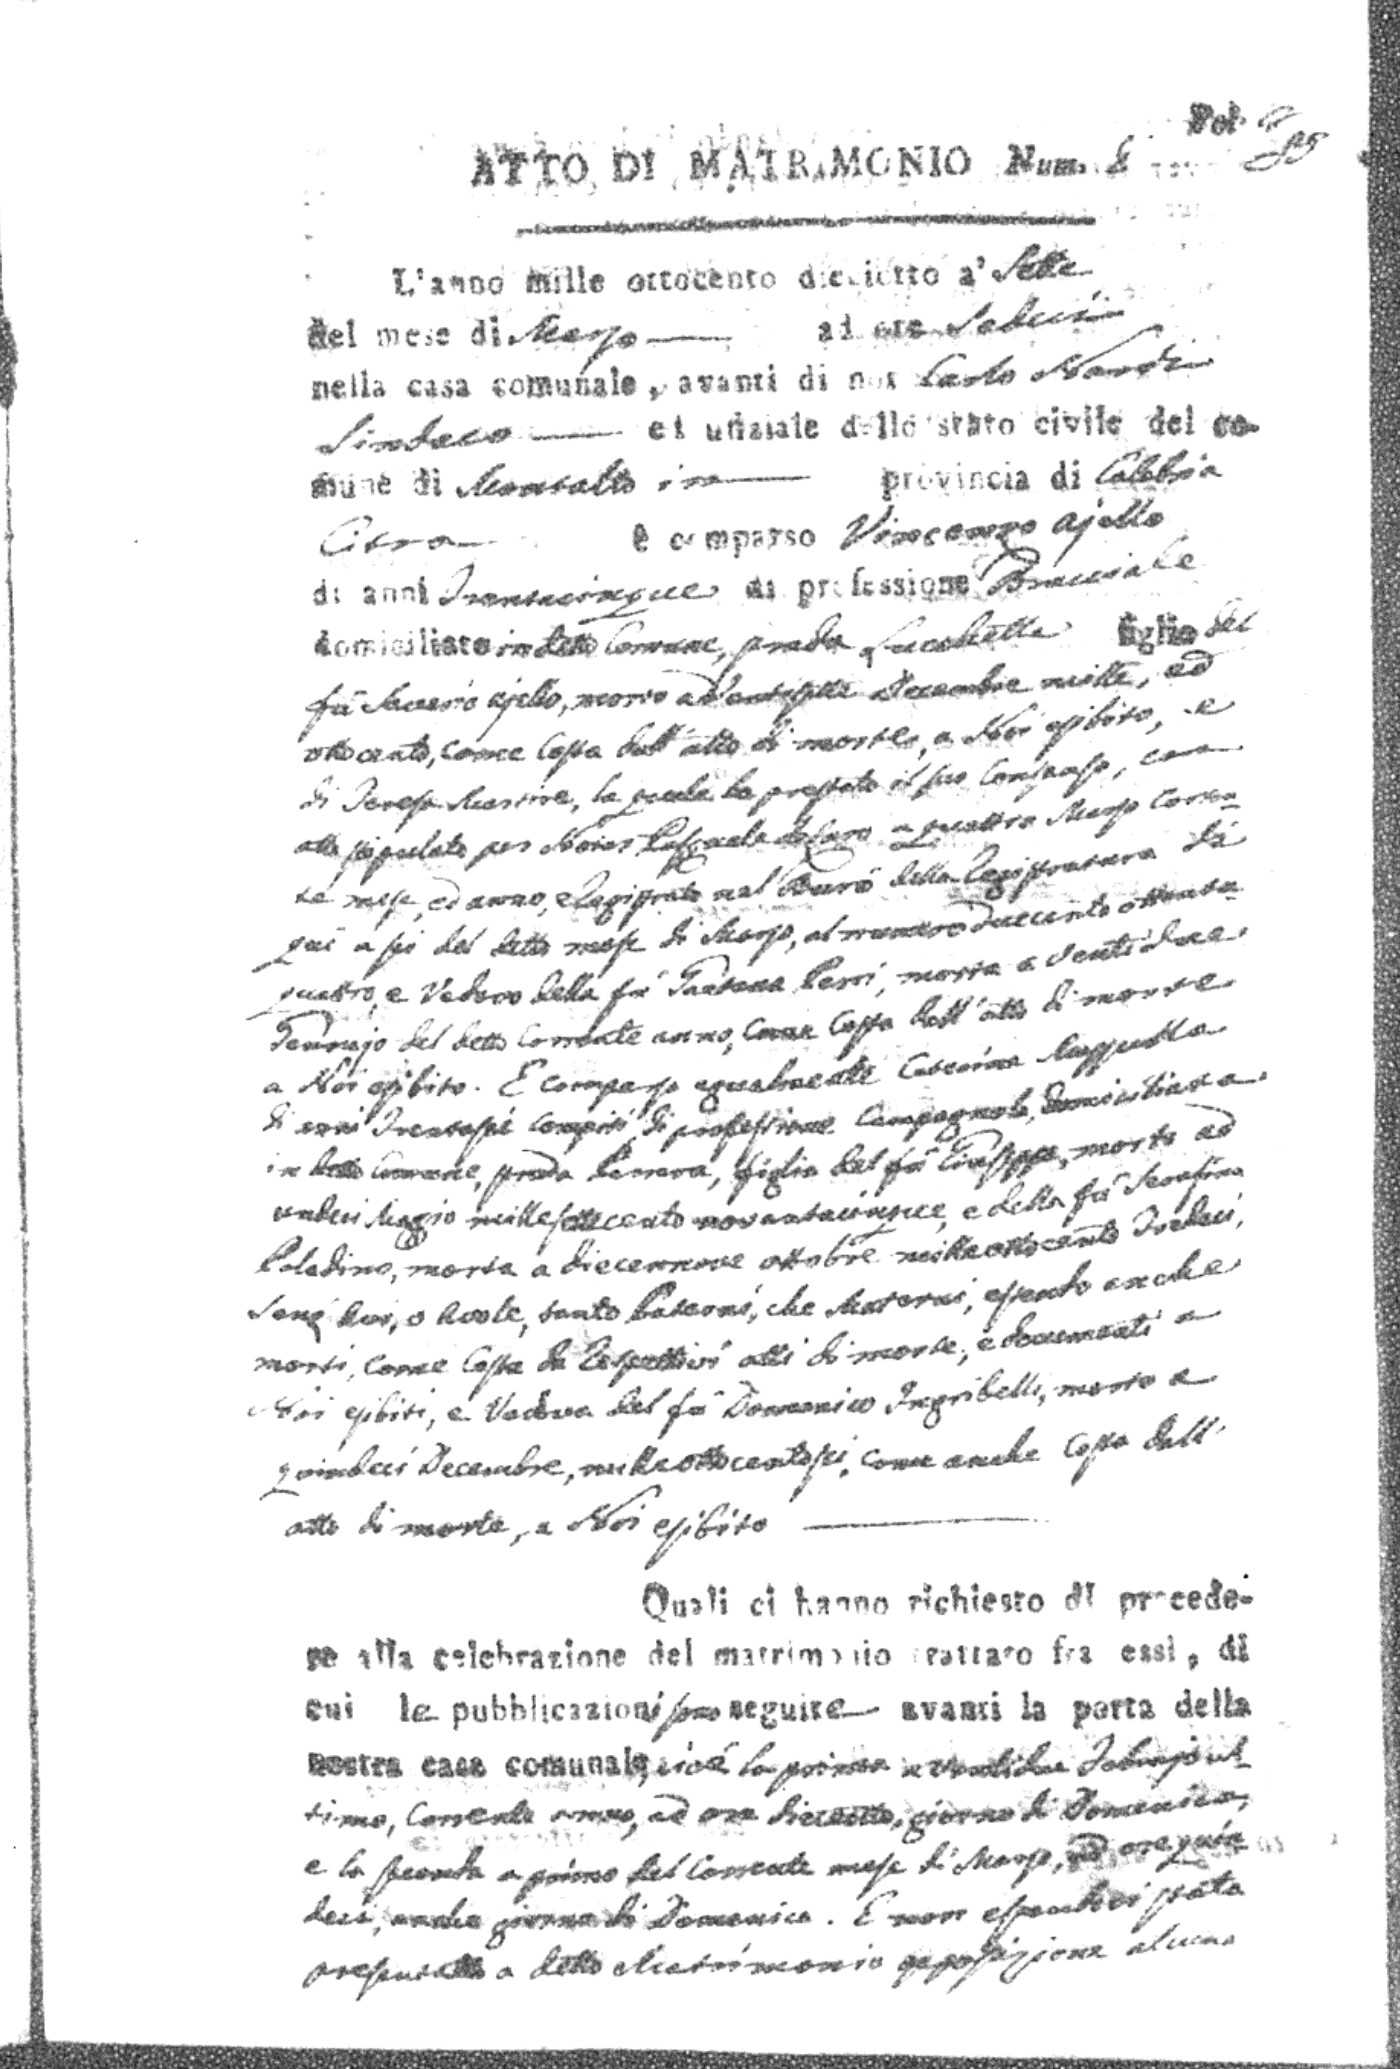 Fol. 85
ATTO DI MATRIMONIO Num. 8
L'anno mille ottocento dieciotto a' Sette
del mese di Marzo ad ore Sedici
nella casa comunale, avanti di noi Carlo Nardi
Sindaco ed ufiziale dello stato civile del co-
mune di Montalto in provincia di Calabria
Citra è comparso Vincenzo Ajello
di anni Trentacinque di professione Bracciale
domiciliato in detto Comune, strada figlio del
fù Saverio Ajello, morto a ventisette Decembre mille, ed
ottocento, come costa dall'atto di morte, a Noi esibito, e
di Teresa Martire, la quale ha prestato il suo Consenso, con
atto stipulato per Notar Pasquale de Caro a quattro Marzo Corren-
te mese, ed anno, e Registrato nel Burò della Registratura di
quì a sei del detto mese di Marzo, al numero Duecento ottanta-
quattro, e Vedovo della fù Gaetana Perri, morta a ventidue
Gennajo del detto Corrente anno, Come Costa dall'atto di morte
a Noi esibito. E comparso egualmente Caterina Mazzulla
di anni Trentasei compiti di professione Campagnola, domiciliata
in detto Comune, strada figlia del fù Giuseppe, morto ad
undici Maggio millesettecento novantacinque, e della fù Serafina
Paladino, morta a diecennove ottobre mille ottocento Tredeci,
senz'Avi, o Avole, tanto Paterni, che Materni, essendo anche
morti, come Costa da Respettivi atti di morte, e documenti a
Noi esibiti, e Vedova del fù Domenico Ingribelli, morto a
quindeci Decembre, mille ottocentosei, come anche Costa dall'
atto di morte, a Noi esibito
Quali ci hanno richiesto di procede-
re alla celebrazione del matrimonio trattato fra essi, di
cui le pubblicazioni sono seguite avanti la porta della
nostra casa comunale, cioè la prima a ventidue Febrajo ul-
timo, Corrente anno, ad ore dieciotto, giorno di Domenica,
e la seconda a primo del Corrente mese di Marzo, ad ore quin
deci, anche giorno di Domenica. E non essendoci stata
presentata a detto Matrimonio opposizione alcuna